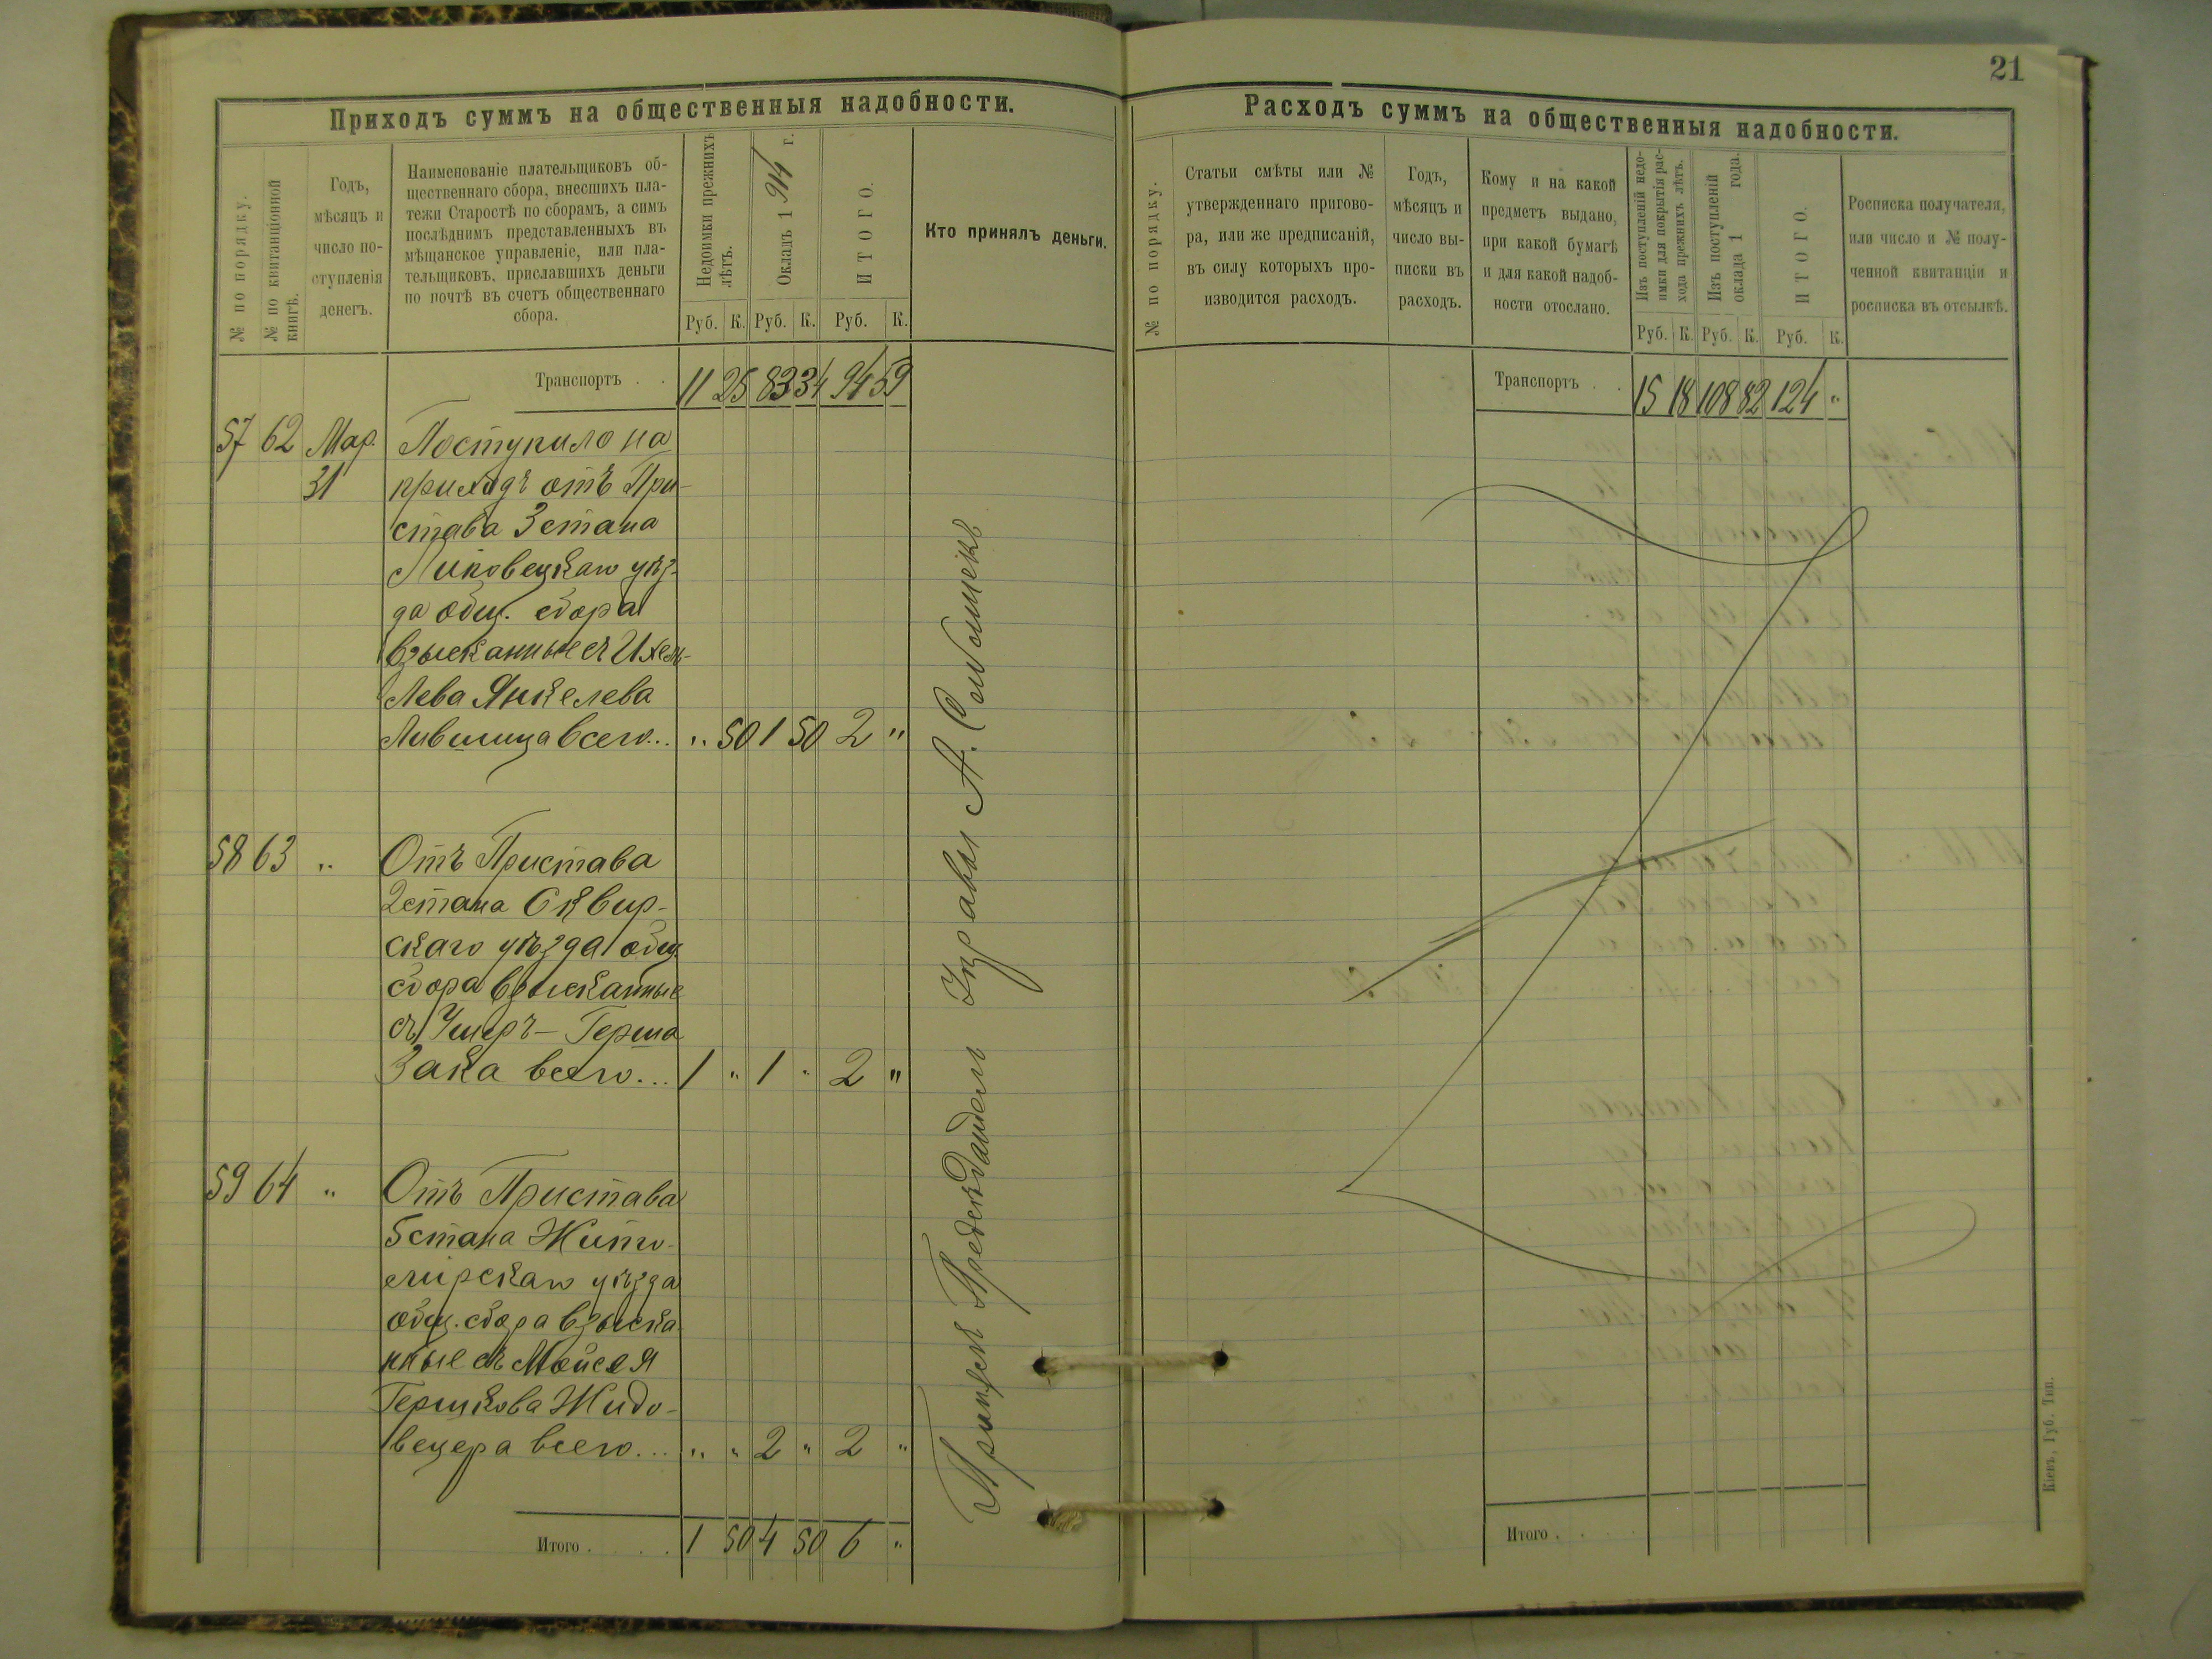 Приходъ суммъ на общественныя надобности.
№ по порядку.
№ по квитанціонной
книгѣ.
Годъ,
мѣсяцъ и
число по-
ступленія
денегъ.
Наименованіе плательщиковъ об-
щественнаго сбора, внесшихъ пла-
тежи Старостѣ по сборамъ, а симъ
послѣднимъ представленныхъ въ
мѣщанское управленіе, или пла-
тельщиковъ, приславшихъ деньги
по почтѣ въ счетъ общественнаго
сбора.
Недоимки прежнихъ
лѣтъ.
Окладъ 1 914 г.
ИТОГО.
Кто принялъ деньги.
Руб. К. Руб. К. Руб. К.
Транспортъ . . 11 25 83 34 94 59
57 62 Мар. Поступило на
31 приходъ отъ При-
става 3 стана
Липовецкаго уѣз-
да общ. сбора
взысканные съ Ихель-
Лева Янкелева
Лившица всего... " 50 1 50 2 "
58 63 " Отъ Пристава
2 стана Сквир-
скаго уѣзда общ.
сбора взысканные
съ Ушеръ-Герша
Зака всего... 1 " 1 " 2 "
59 64 " Отъ Пристава
5 стана Жито-
мірскаго уѣзда
общ. сбора взыска-
нные съ Мойсея
Гершкова Жидо-
вецера всего... " " 2 " 2 "
Итого . . . . 1 50 4 50 6 "
Управы А.
21
Расходъ суммъ на общественныя надобности.
№ по порядку.
Статьи смѣты или №
утвержденнаго пригово-
ра, или же предписаній,
въ силу которыхъ про-
изводится расходъ.
Годъ,
мѣсяцъ и
число вы-
писки въ
расходъ.
Кому и на какой
предметъ выдано,
при какой бумагѣ
и для какой надоб-
ности отослано.
Изъ поступленій недо-
имки для покрытія рас-
хода прежнихъ лѣтъ.
Изъ поступленій
оклада 1 года.
ИТОГО.
Росписка получателя,
или число и № полу-
ченной квитанціи и
росписка въ отсылкѣ.
Руб. К. Руб. К. Руб. К.
Транспортъ . . 15 18 108 82 124 "
Итого . . . .
Кіевъ, Губ. Тип.